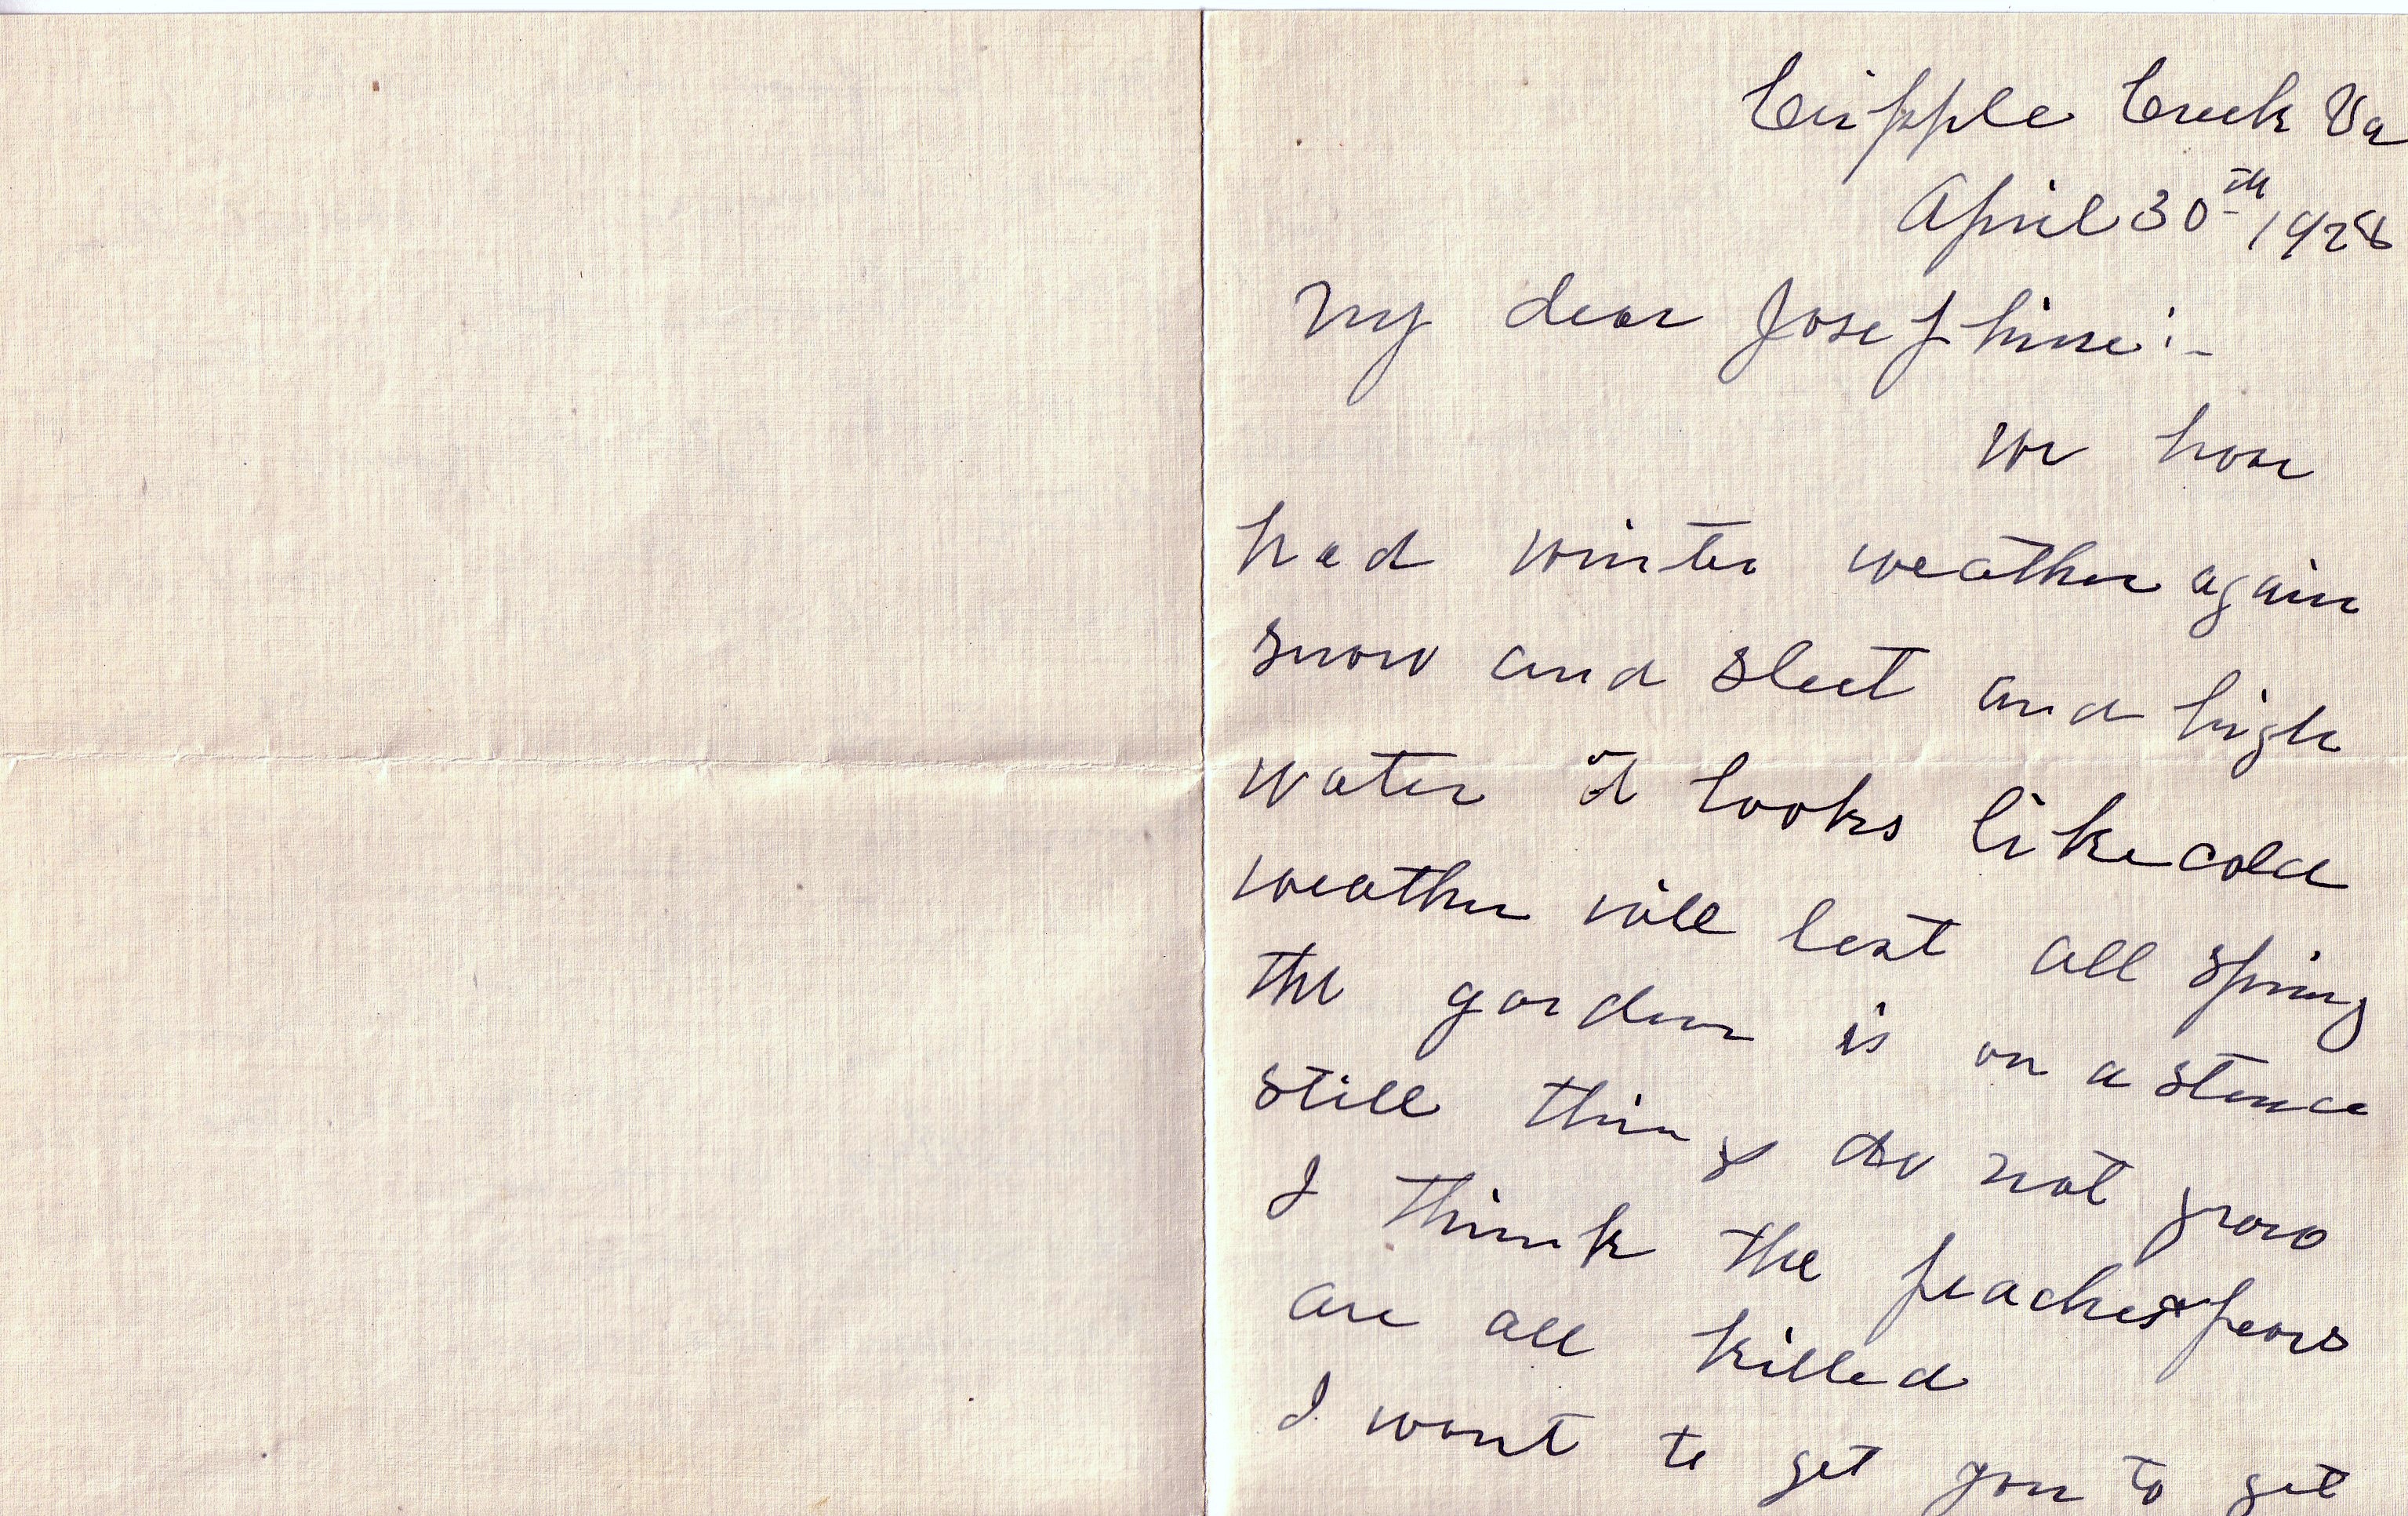 Cripple Creek Va
April 30th 1928
My dear Josephine:-
We have
had winter weather again
snow and sleet and high
water it looks like cold
weather will last all spring
the garden is on a stance
still things do not grow
I think the peaches & pears
are all killed
I want to get you to get